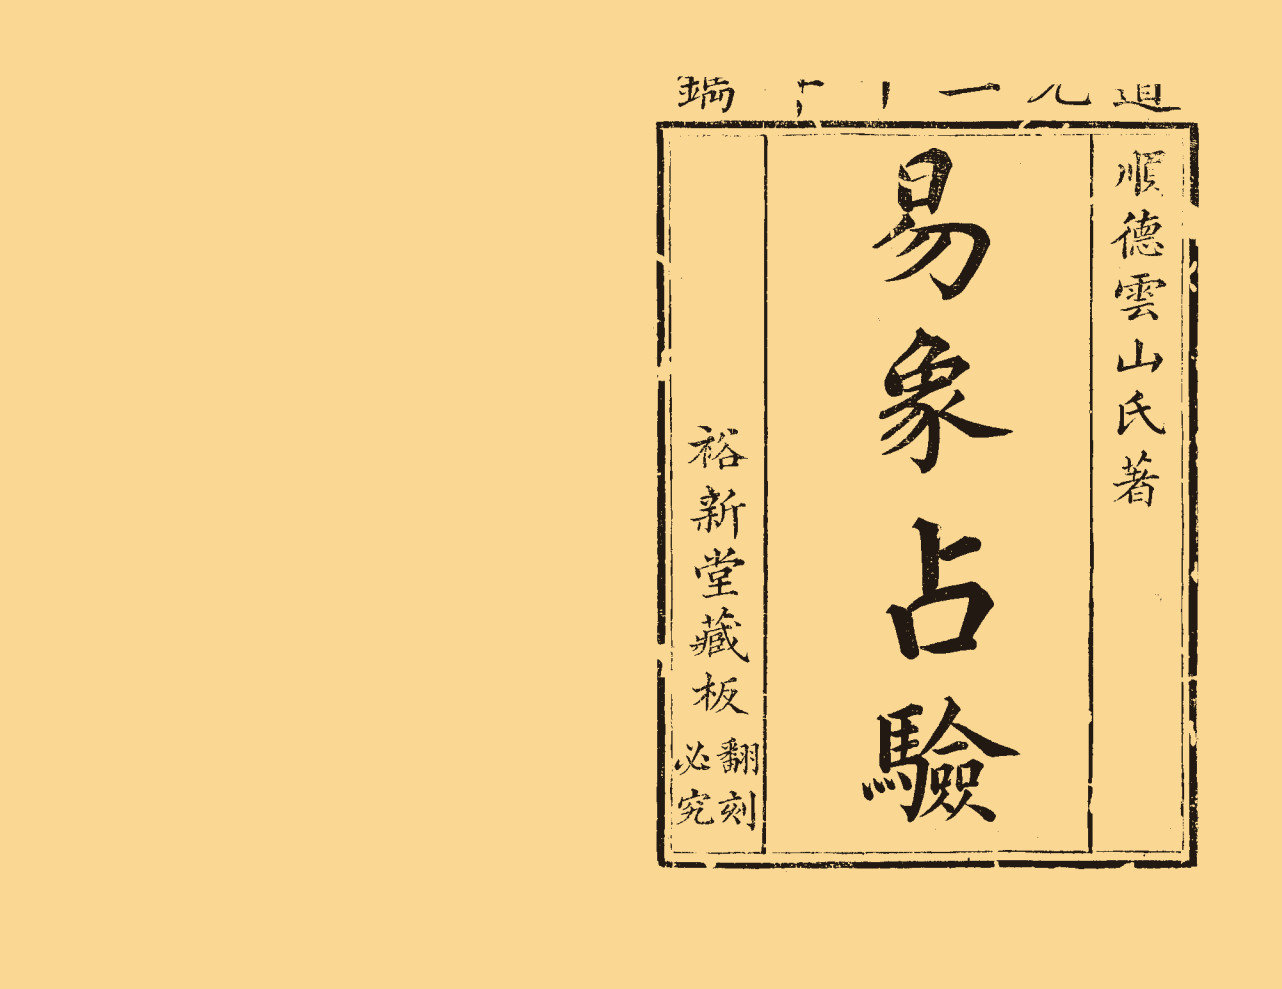 道光十年鐫
順德雲山氏著
易象占驗
裕新堂藏板
翻刻
必究